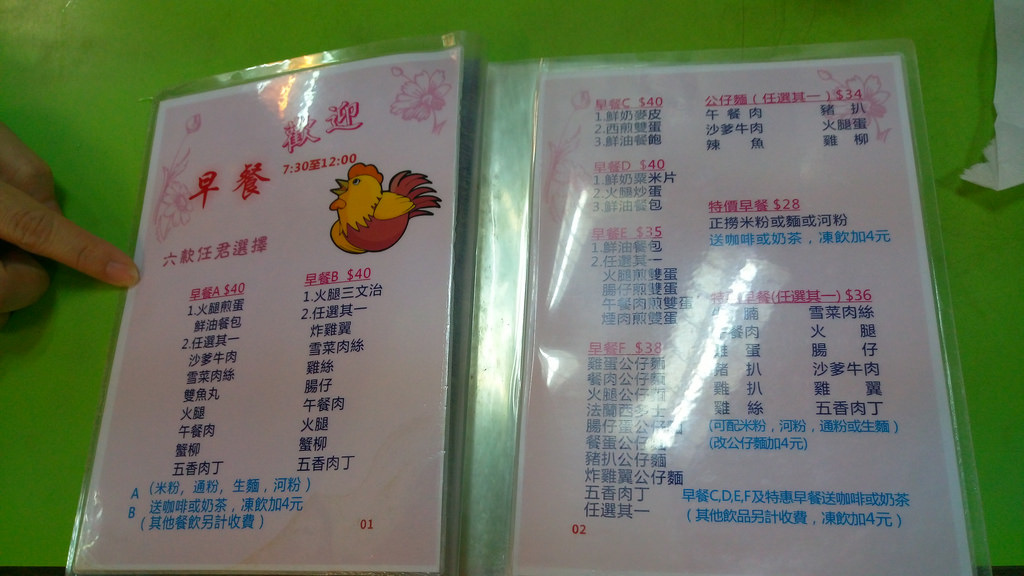 歡迎
早餐 7:30至12:00
六款任君選擇
早餐A $40
1.火腿煎蛋
鮮油餐包
2.任選其一
沙爹牛肉
雪菜肉絲
雙魚丸
火腿
午餐肉
蟹柳
五香肉丁
早餐B $40
1.火腿三文治
2.任選其一
炸雞翼
雪菜肉絲
雞絲
腸仔
午餐肉
火腿
蟹柳
五香肉丁
A (米粉,通粉,生麵,河粉)
B 送咖啡或奶茶,凍飲加4元
(其他餐飲另計收費)
01
早餐C $40
1.鮮奶麥皮
2.西煎雙蛋
3.鮮油餐飽
早餐D $40
1.鮮奶粟米片
2.火腿炒蛋
3.鮮油餐包
早餐E $35
1.鮮油餐包
2.任選其一
火腿煎雙蛋
腸仔煎雙蛋
午餐肉煎雙蛋
煙肉煎雙蛋
早餐F $38
雞蛋公仔麵
餐肉公仔麵
火腿公仔
法蘭西多士
腸仔蛋公仔
餐蛋公仔
豬扒公仔麵
炸雞翼公仔麵
五香肉丁
任選其一
02
公仔麵(任選其一)$34
午餐肉 豬扒
沙爹牛肉 火腿蛋
辣魚 雞柳
特價早餐 $28
正撈米粉或麵或河粉
送咖啡或奶茶,凍飲加4元
早餐(任選其一) $36
腩 雪菜肉絲
餐肉 火腿
蛋 腸仔
豬扒 沙爹牛肉
雞扒 雞翼
雞絲 五香肉丁
(可配米粉,河粉,通粉或生麵)
(改公仔麵加4元)
早餐C,D,E,F及特惠早餐送咖啡或奶茶
(其他飲品另計收費,凍飲加4元)